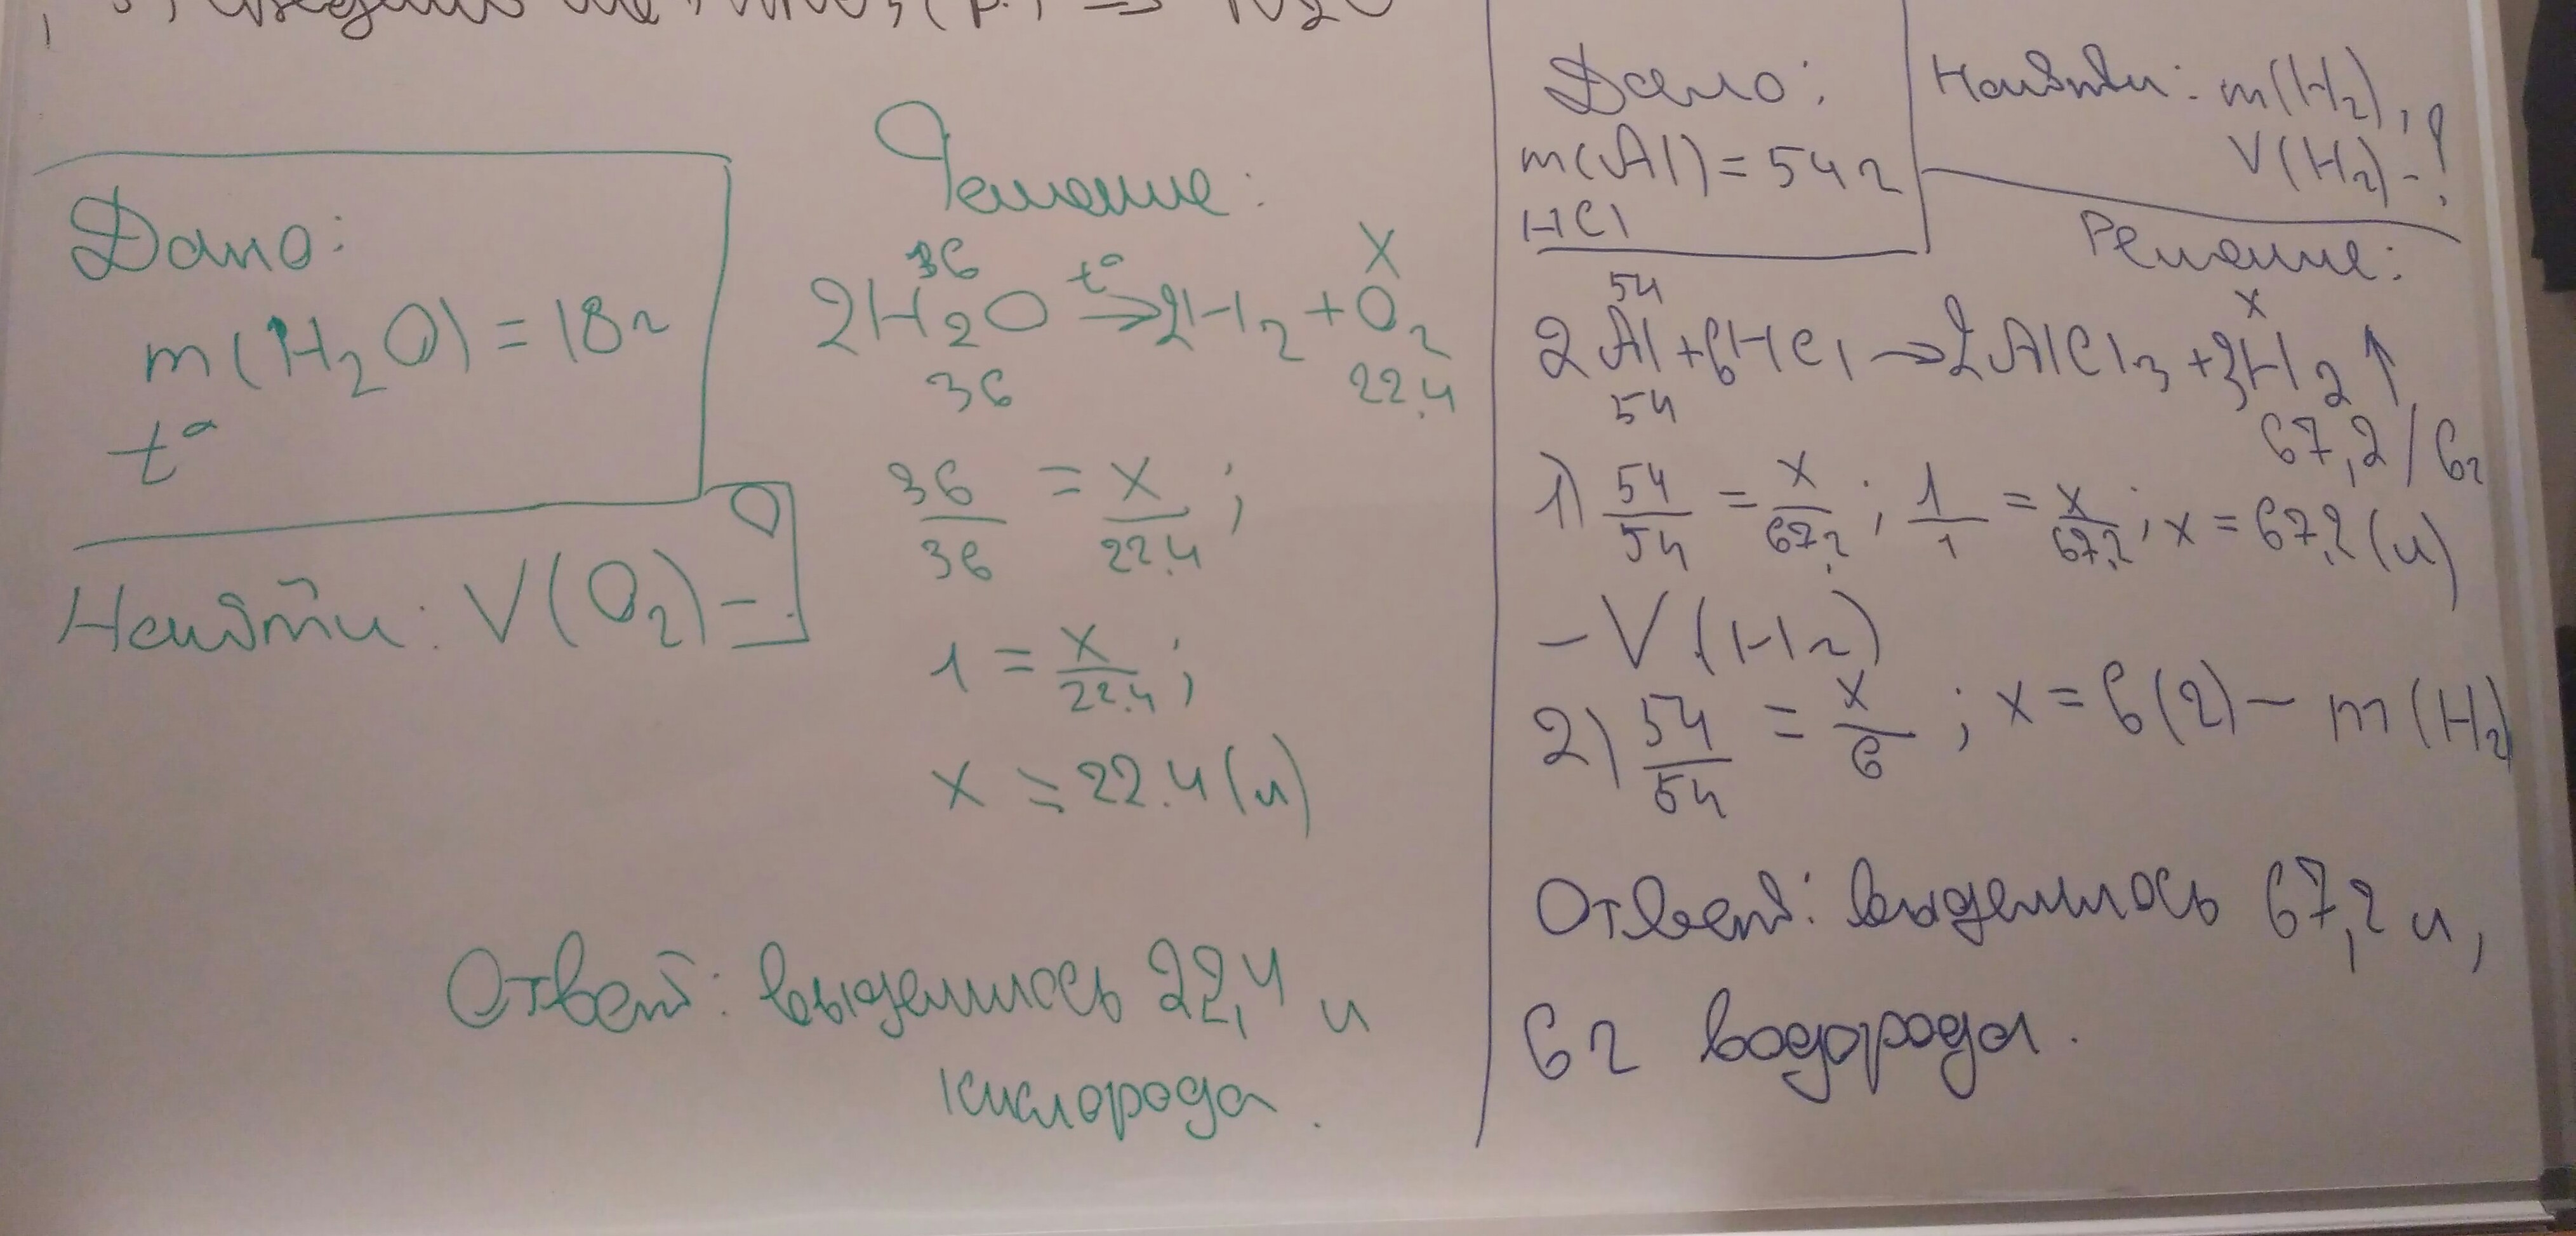 Дано:
m(H₂O) = 18г
t°
Найти: V(O₂) - ?
Решение:
36 X
2H₂O t° → 2H₂ + O₂
36 22.4
36/36 = X/22.4 ;
1 = X/22.4 ;
x = 22.4 (л)
Ответ: выделилось 22,4 л
кислорода.
Дано:
m(Al) = 54 г
HCl
Найти: m(H₂),
V(H₂) - ?
Решение:
54 x
2Al + 6HCl → 2AlCl₃ + 3H₂ ↑
54 67,2 / 6г
1) 54/54 = x/67,2 ; 1/1 = x/67,2 ; x = 67,2 (л)
- V(H₂)
2) 54/54 = x/6 ; x = 6 (г) - m(H₂)
Ответ: выделилось 67,2 л,
6 г водорода.